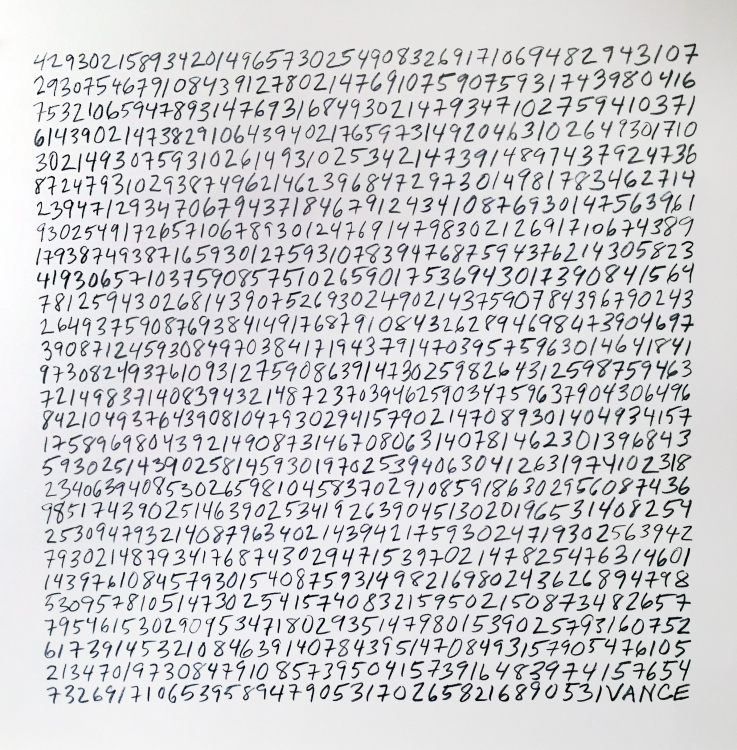 4293021589342014965730254908326917106948294310​7
29307546791084391278021476910759075931743980416
7532106594789314769316849302147934710275941037​1
6143902147382910643940217659731492046310264930​1710
3021493075931026149310253421473914897437924736
872479310293874962146239684729730149817834627​14
2394712934706794371846791243410876930147563961
9302549172657106789301247691479830212691710674389
1793874938716593012759310783947687594376214305823
4193065710375908575102659017536943017390841564
7812594302681439075269302490214375907843967902​43
2649375908769384149176879108432628946984739046​97
3908712459308497038417194379147039575963014641841
9730824937610931275908639147302598264312598759463
7214983714083943214872370394625903475963790430​6496
8421049376439081047930294157902147089301404934157
1758969804392149087314670806314078146230139684​3
5930251439025814593019702539406304126319741023​18
2340639408530265981045837029108591863029560874​36
9851743902514639025341926390451302019653140825​4
2530947932140879634021439421759302471930256394​2
7930214879341768743029471539702147825476314601
1439761084579301540875931498216980243626894798
5309578105147302541574083215950215087348265​7
7954615302904534718029351479801539025793160752
6173914532108463914078439514708493157905476105
2134701973084791085739504157391648397415765​4
7326917106539589479053170265821689053IVANCE